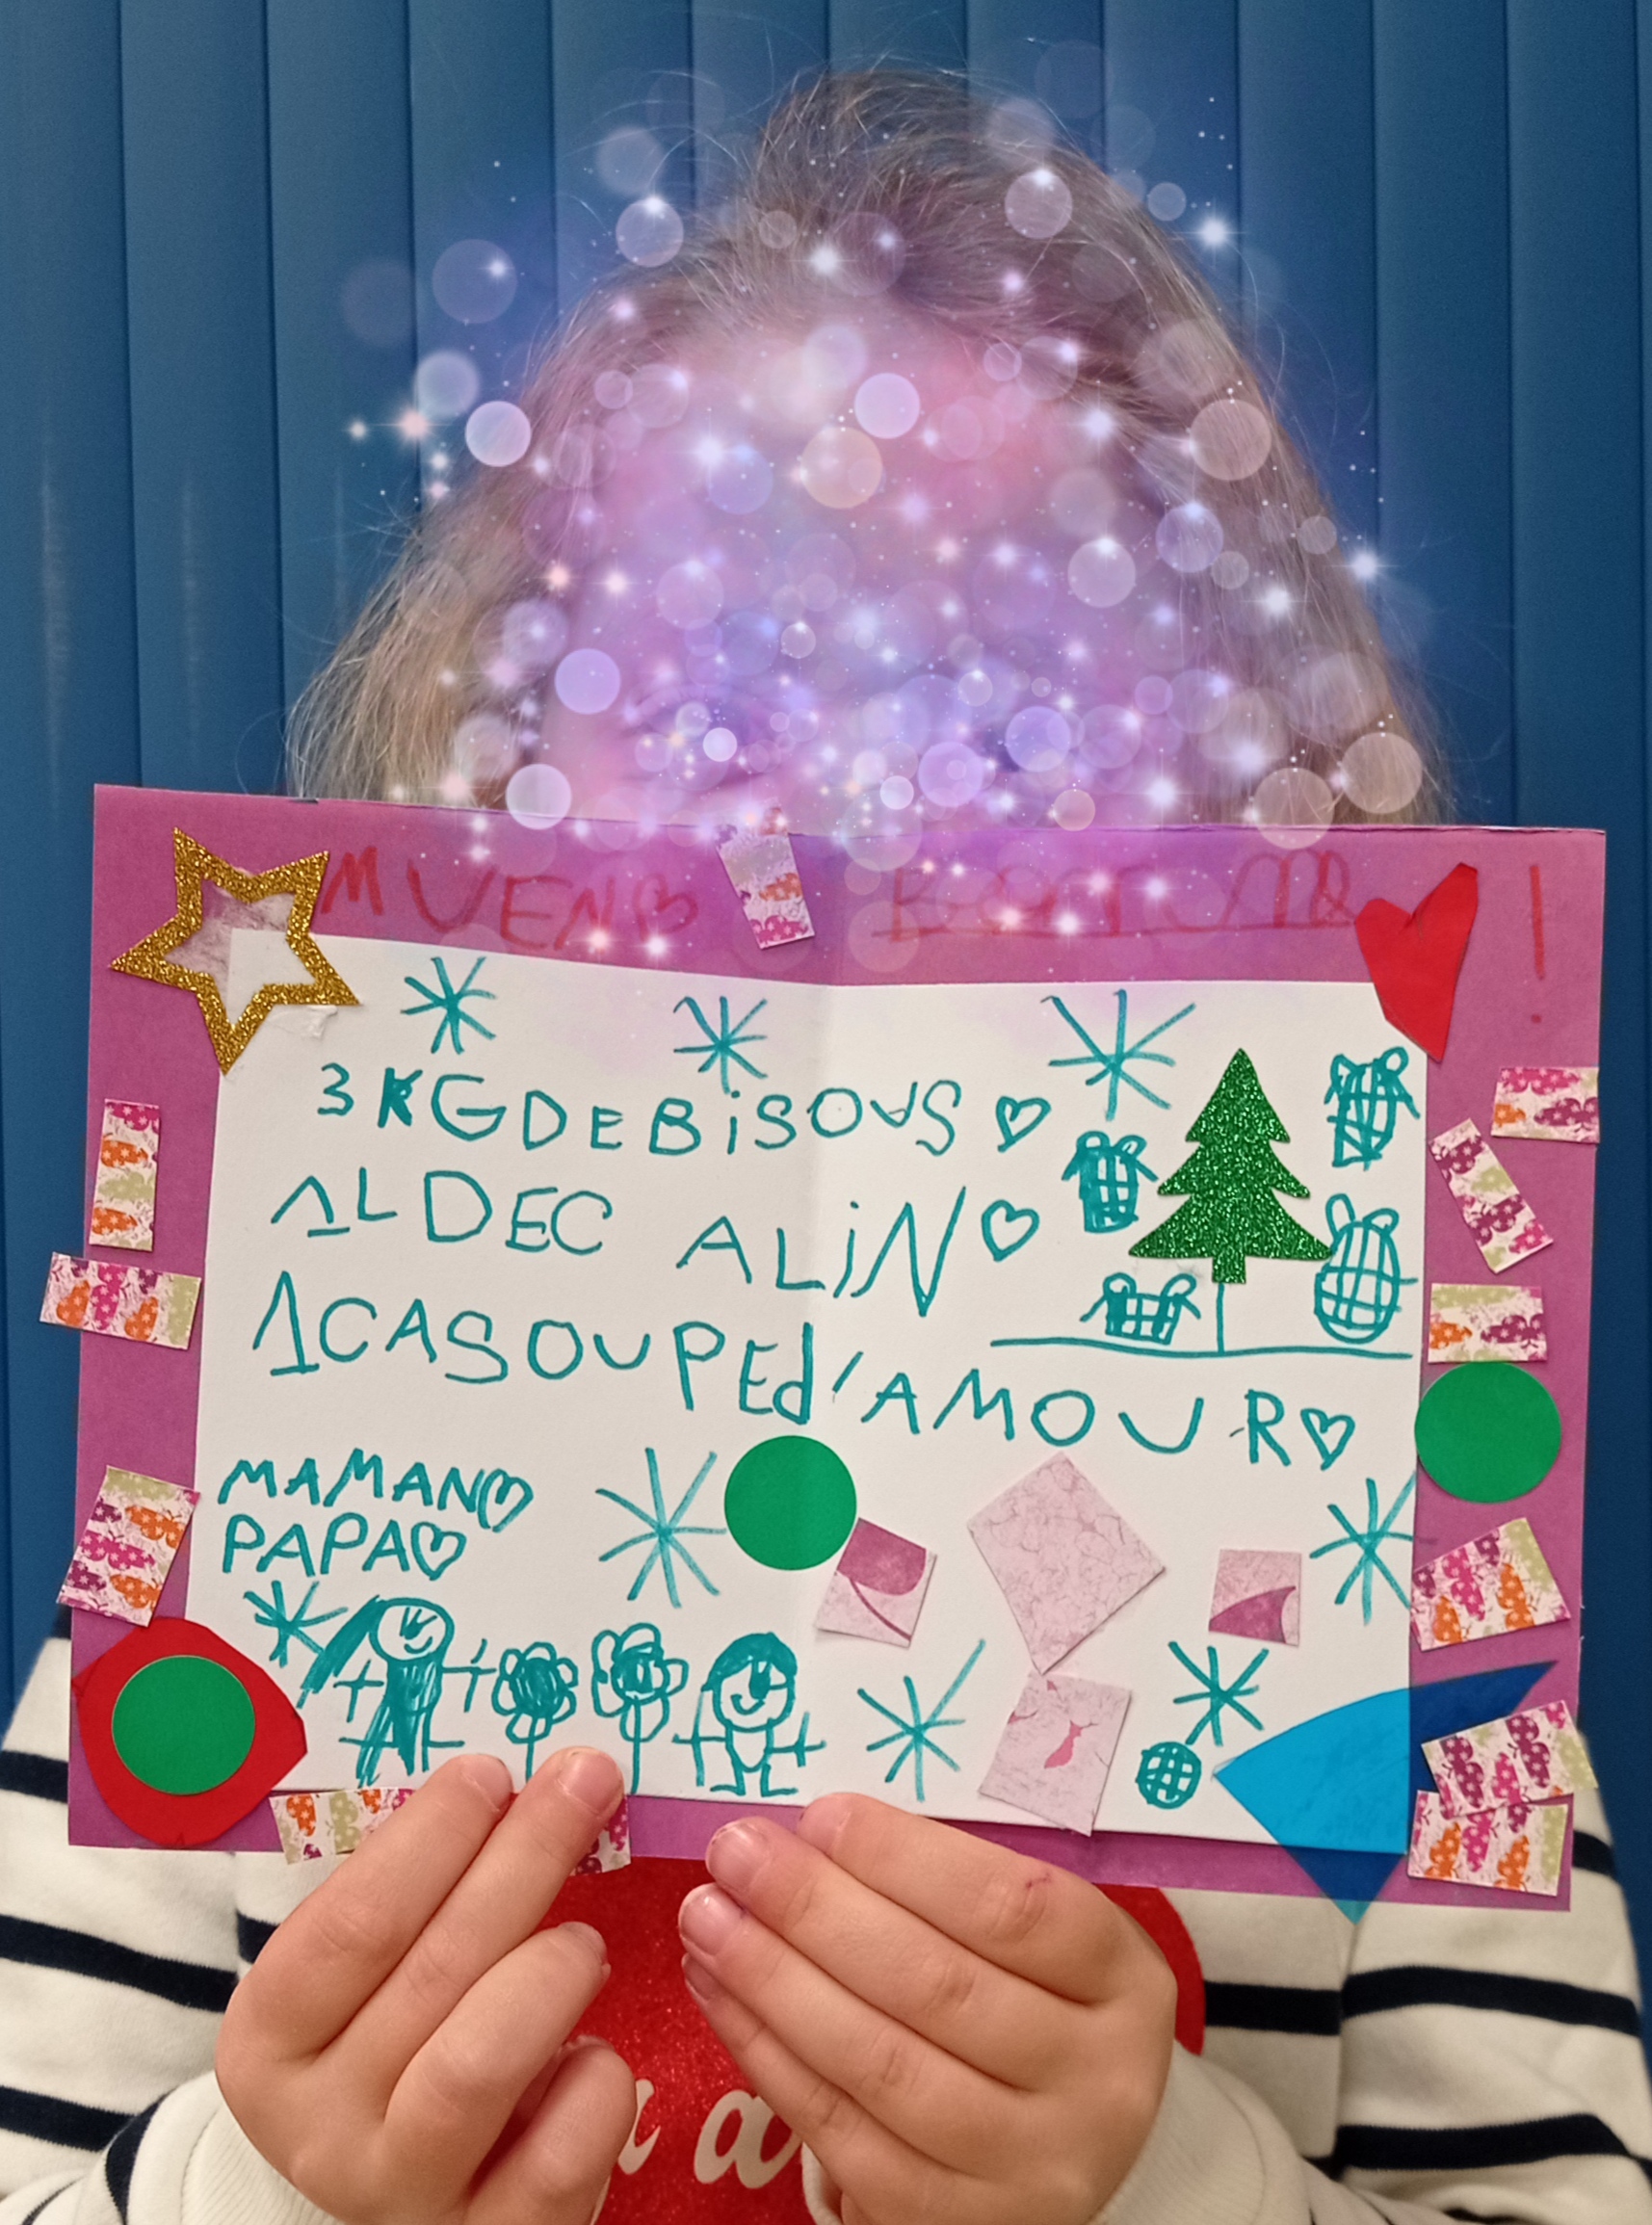 3 KG DE BiSOUS
1L DEC ALiN
1CASOUPEd'AMOUR
MAMAN
PAPA